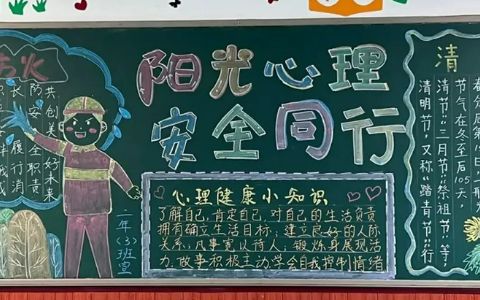 火
共创美好未来
防安全职责
履行消
阳光心理
安全同行
二年(3)班宣
心理健康小知识
了解自己,肯定自己,对自己的生活负责
拥有确立生活目标;建立良好的人际
关系;凡事宽以待人;锻炼身展现活
力.做事积极主动学会自我控制情绪
清
清明节,又称“踏青节”“行
清节”“三月节”“祭祖节”等
节气在冬至后105天
春分后第15日